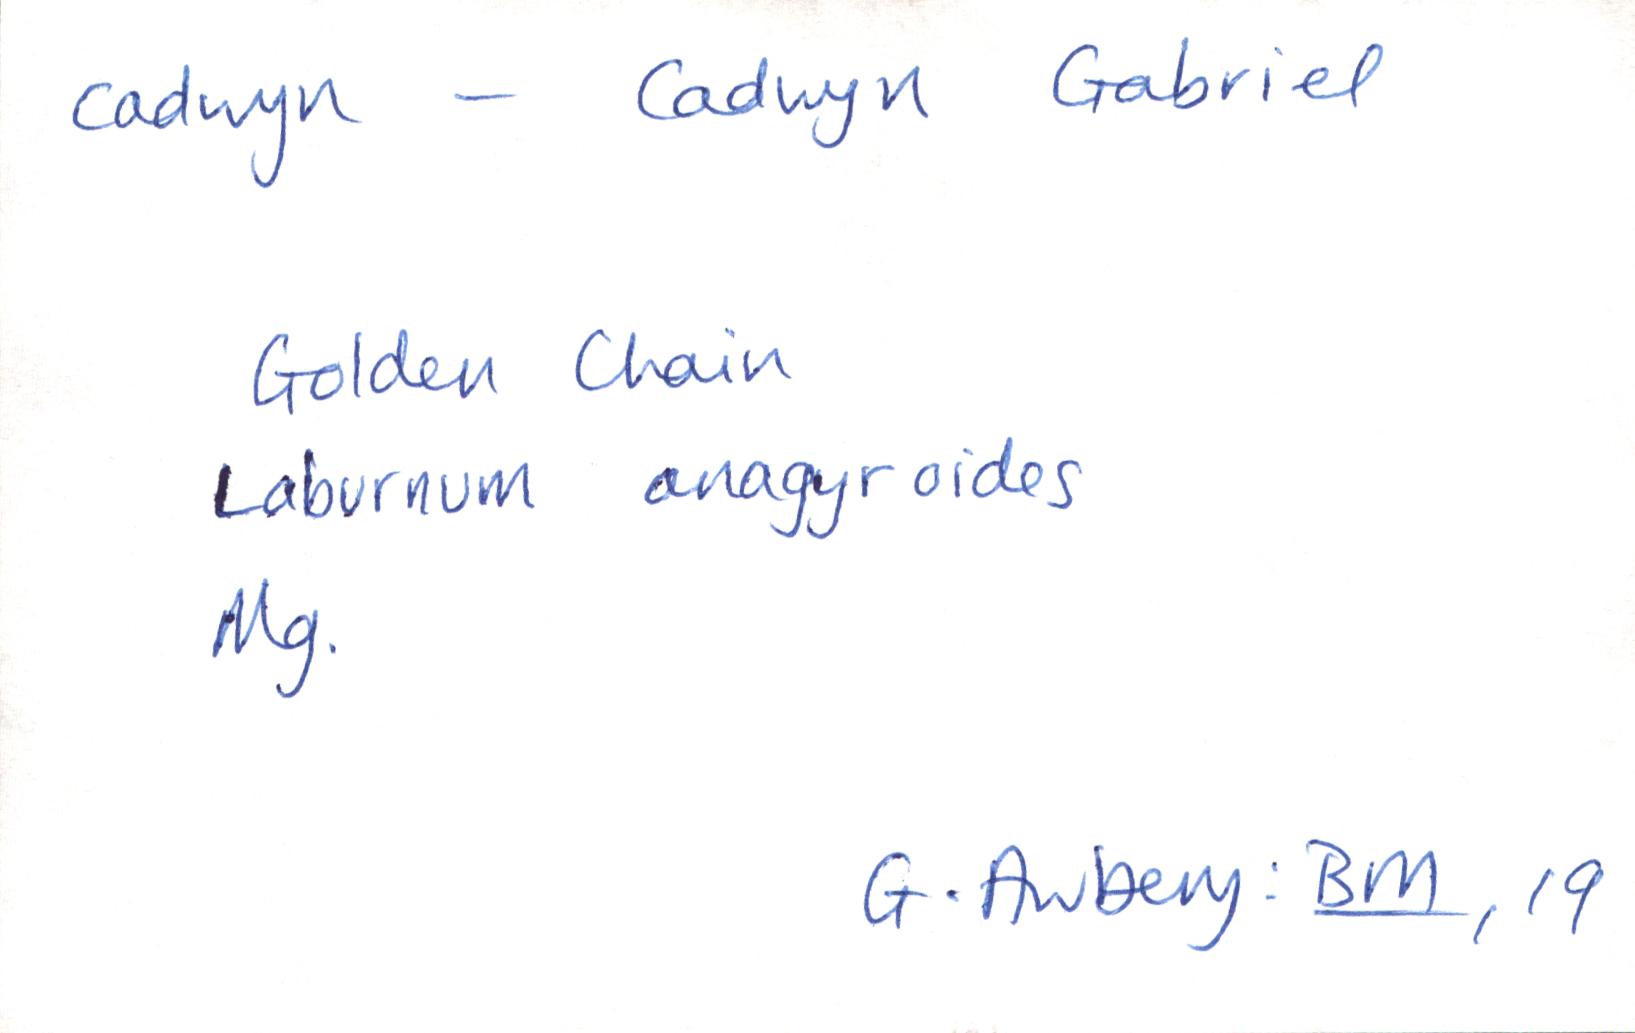 cadwyn – Cadwyn Gabriel
Golden Chain
Laburnum anagyroides
Mg.
G. Awbery: BM, 19